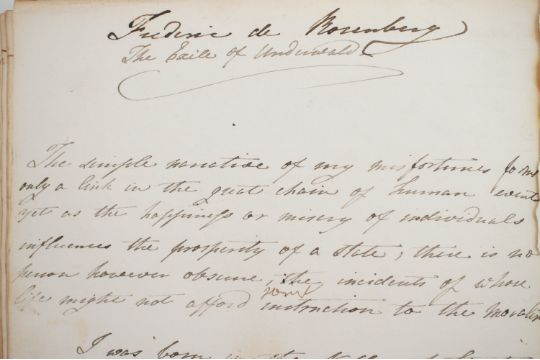 Frederic de Rosenberg
The Exile of Underwald
The simple narative of my misfortunes forms
only a link in the great chain of human events
yet as the happiness or misery of individuals
influences the prosperity of a state; there is no
person however obscure the incidents of whose
life might not afford some instruction to the moralis
I was born in the